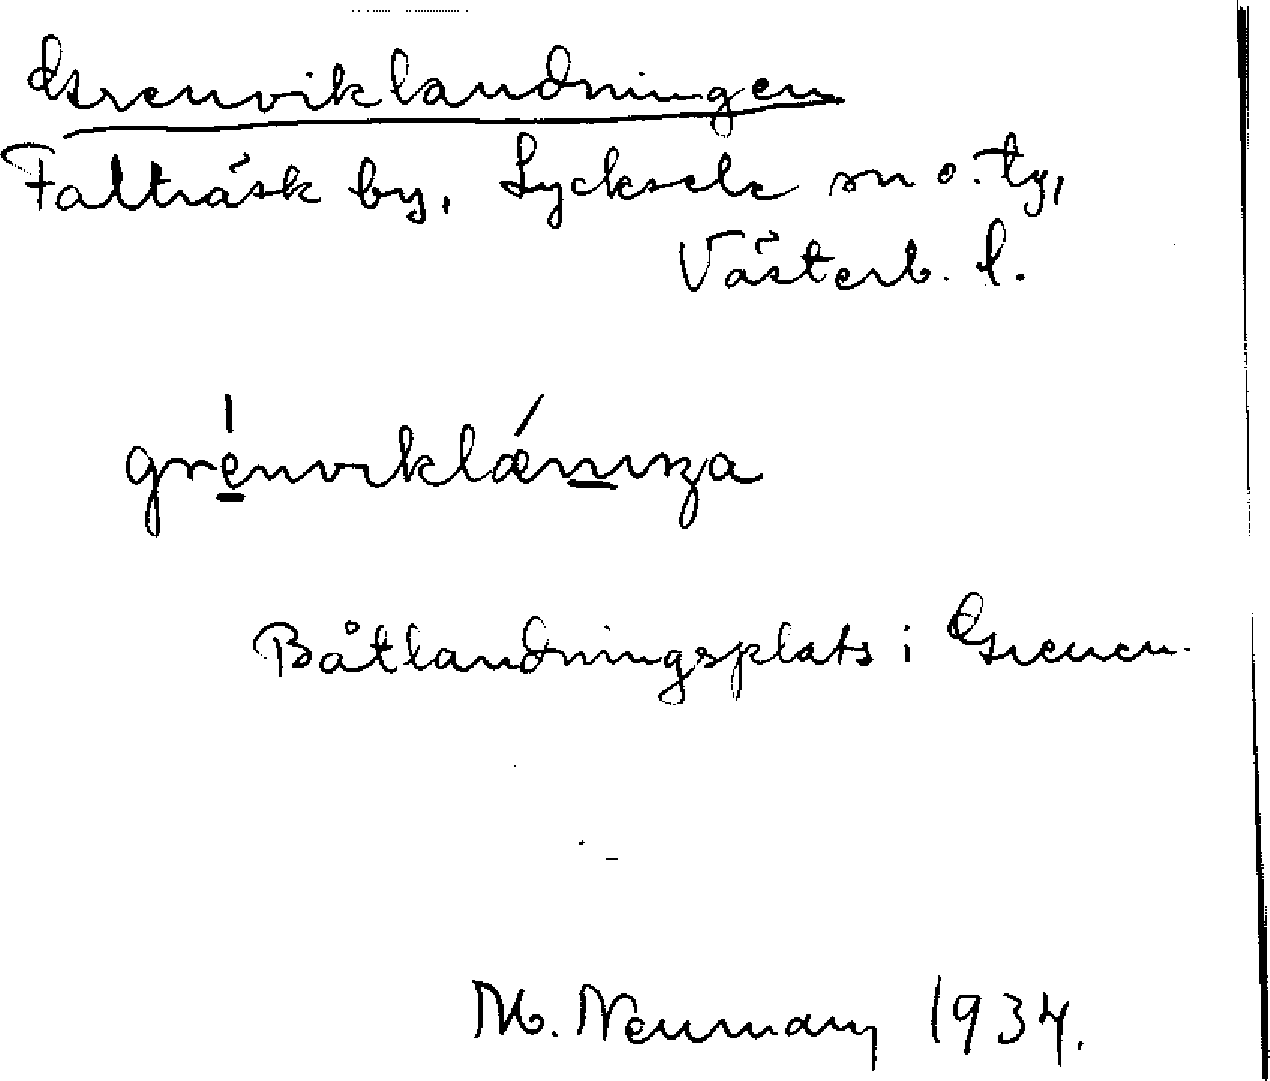 Grenviklandningen
Falträsk by, Lycksele sn o. tg,
Västerb. l.
Båtlandningsplats i Grenen.
M. Neumany 1934.